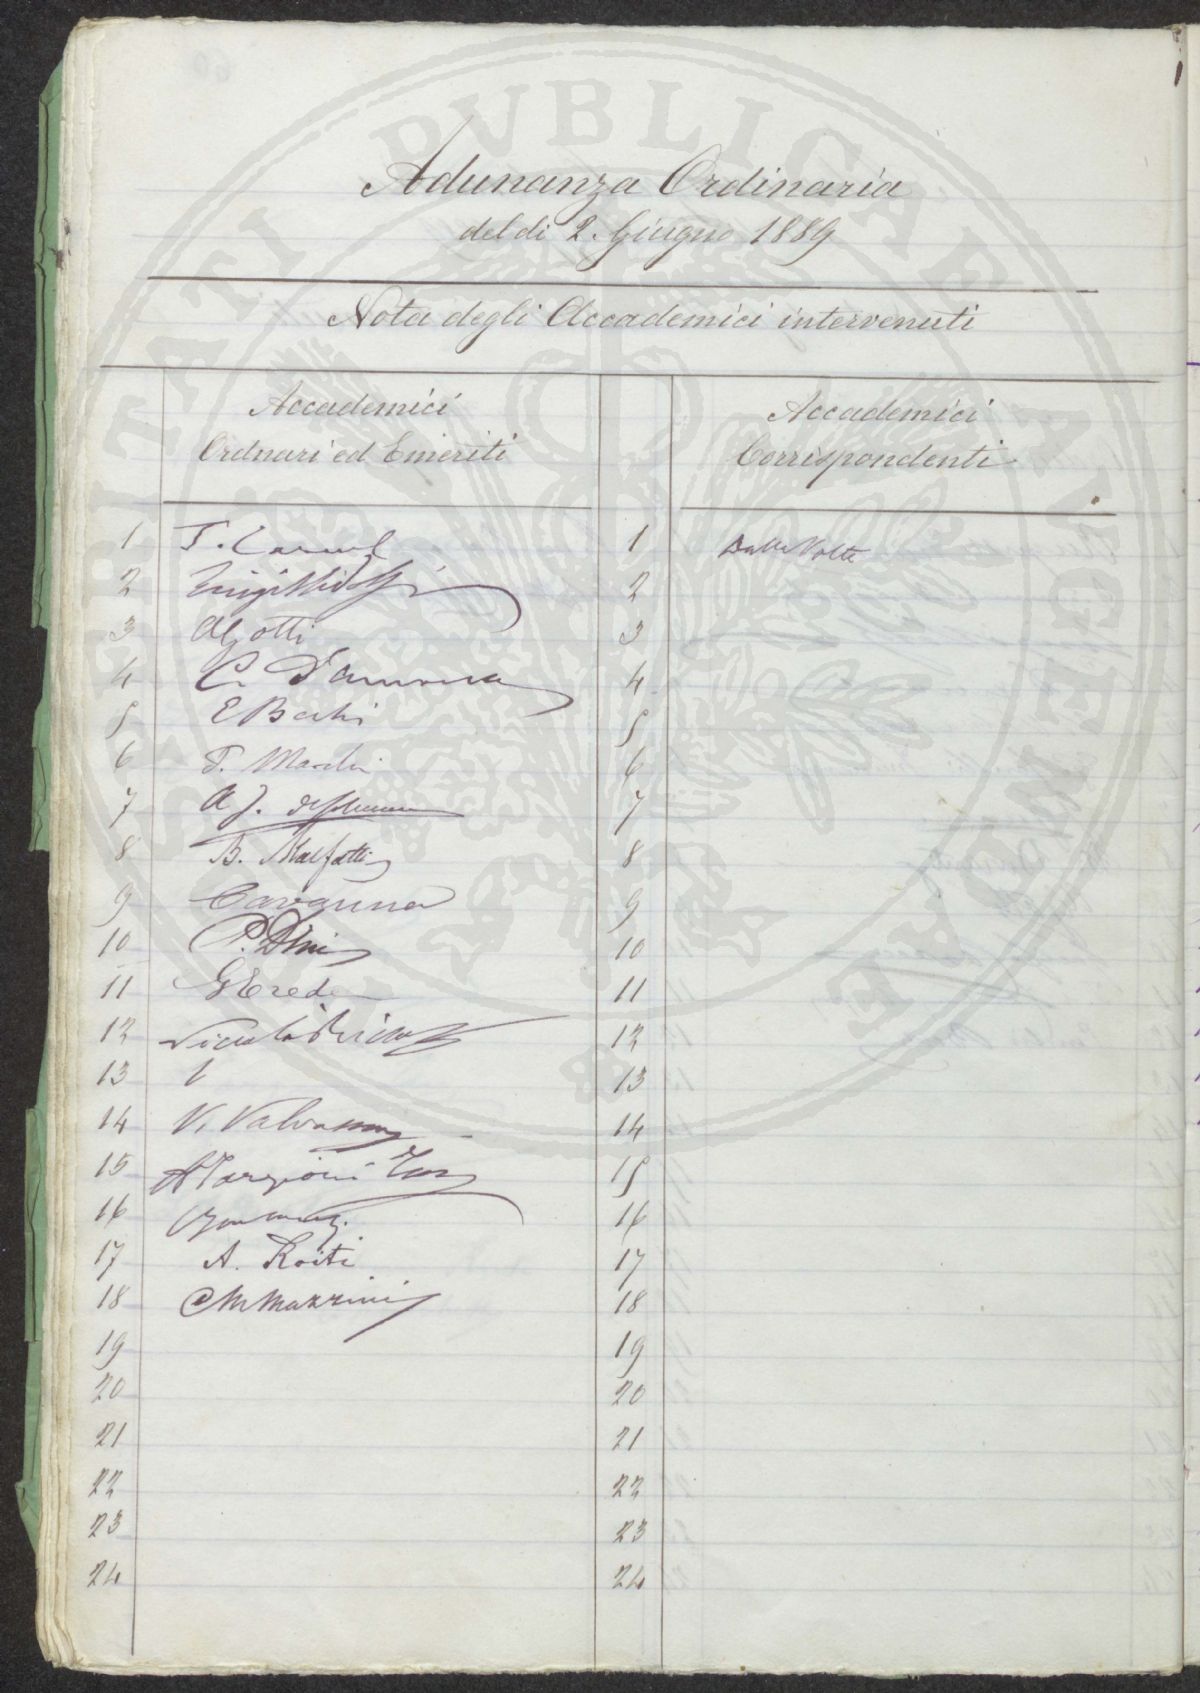 Adunanza Ordinaria
del dì 2. Giugno 1889
Nota degli Accademici intervenuti
Accademici
Ordnari ed Emeriti
Accademici
Corrispondenti
1 T. Caruel 1 Dalla Volta
2 Luigi 2
3 AGotti 3
4 C. 4
5 E Bechi 5
6 P. Marchi 6
7 A J. de Johannis 7
8 B. Malfatti 8
9 Cavanna 9
10 P. 10
11 GErede 11
12 12
13 13
14 V. Valvassori 14
15 ATargioni Tozz 15
16 16
17 A. Roiti 17
18 CMMazzini 18
19 19
20 20
21 21
22 22
23 23
24 24
PUBLICAE
AUGENDAE